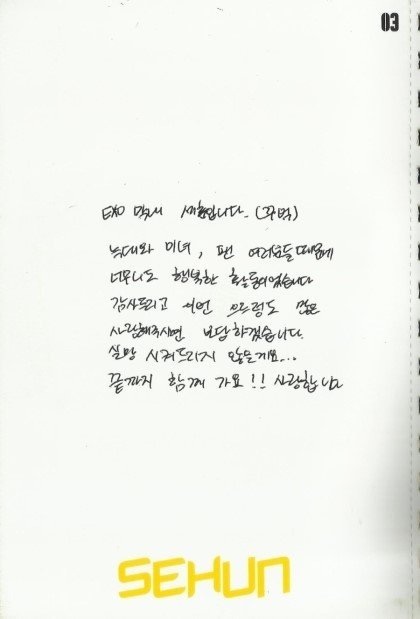 03
EXO 막내 세훈입니다. (꾸벅)
늑대와 미녀, 팬 여러분들 때문에
너무나도 행복한 활동이었습니다
감사드리고 이번 으르렁도 많은
사랑해주시면 보답하겠습니다.
실망 시켜드리지 않을게요...
끝까지 함께 가요!! 사랑합니다
SEHUN